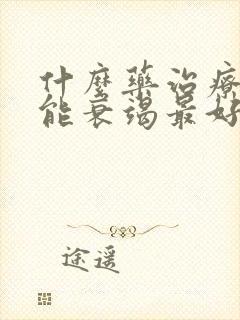 什麼藥治療
能衰竭最好
途遥